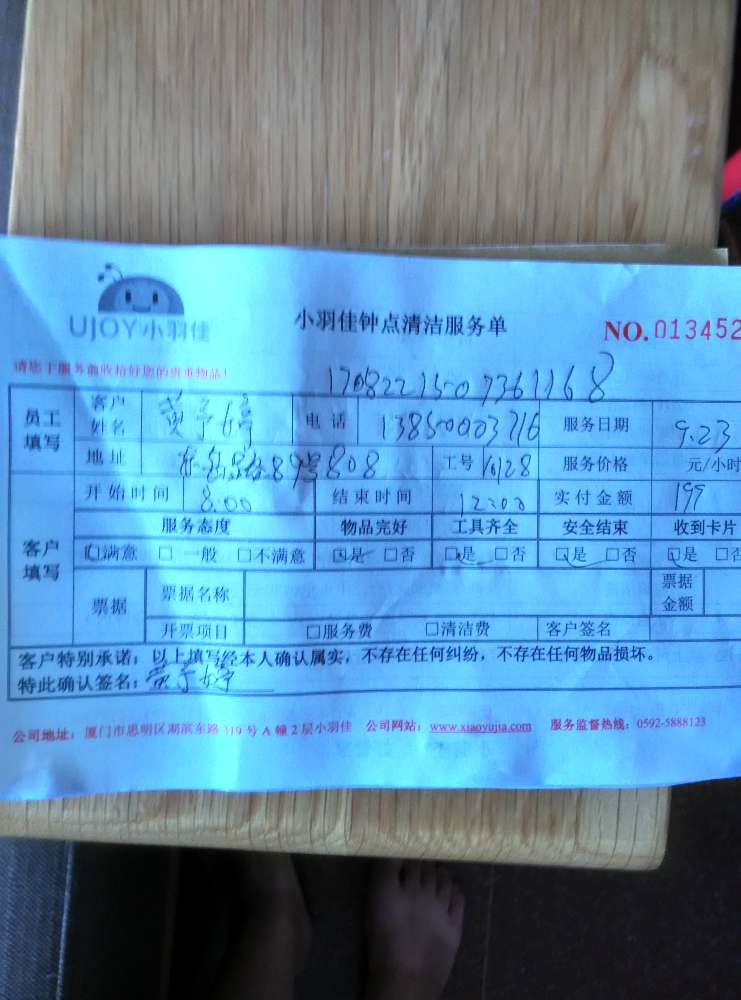 UJOY小羽佳
小羽佳钟点清洁服务单
NO.013452
请您于服务前收拾好您的贵重物品!
1708221507361168
员工填写 客户姓名 黄予婷 电话 13850003716 服务日期 9.23
地址 89号808 工号 服务价格 元/小时
开始时间 8:00 结束时间 12:00 实付金额 199
客户填写 服务态度 物品完好 工具齐全 安全结束 收到卡片
□满意 □一般 □不满意 □是 □否 □是 □否 □是 □否 □是 □否
票据 票据名称 票据金额
开票项目 □服务费 □清洁费 客户签名
客户特别承诺:以上填写经本人确认属实,不存在任何纠纷,不存在任何物品损坏。
特此确认签名:黄予婷
公司地址:厦门市思明区湖滨东路319号A幢2层小羽佳 公司网站:www.xiaoyujia.com 服务监督热线:0592-5888123